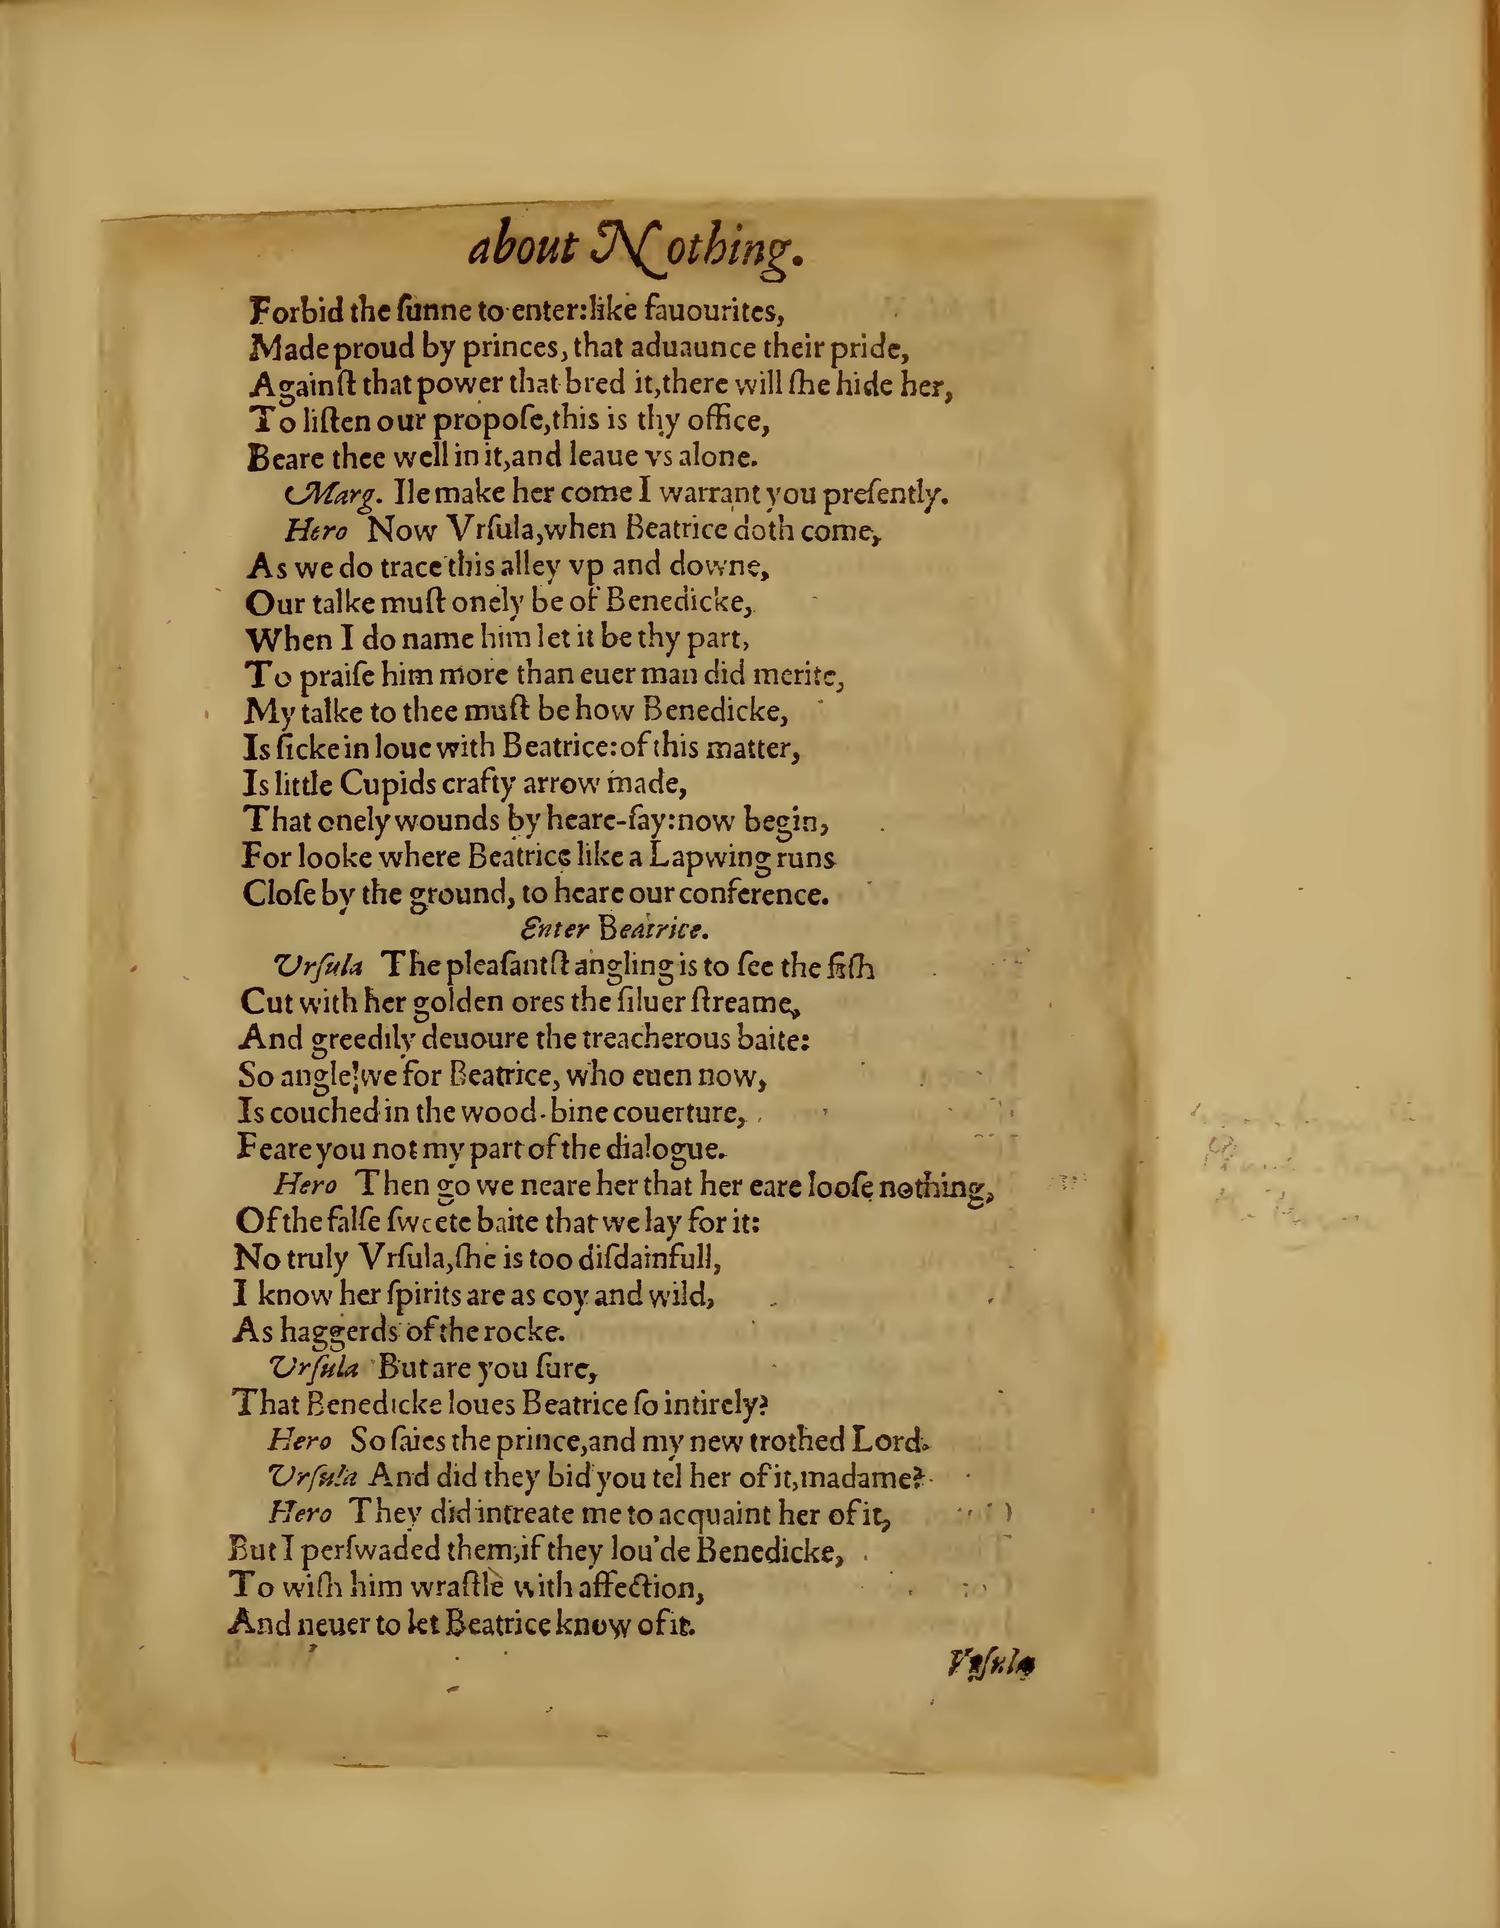 about Nothing.
Forbid the ſunne to enter: like fauourites,
Made proud by princes, that aduaunce their pride,
Againſt that power that bred it, there will ſhe hide her,
To liſten our propoſe, this is thy office,
Beare thee well in it, and leaue vs alone.
Marg. Ile make her come I warrant you preſently.
Hero Now Vrſula, when Beatrice doth come,
As we do trace this alley vp and downe,
Our talke muſt onely be of Benedicke,
When I do name him let it be thy part,
To praiſe him more than euer man did merite,
My talke to thee muſt be how Benedicke,
Is ſicke in loue with Beatrice: of this matter,
Is little Cupids crafty arrow made,
That onely wounds by heare-ſay: now begin,
For looke where Beatrice like a Lapwing runs
Cloſe by the ground, to heare our conference.
Enter Beatrice.
Vrſula The pleaſantſt angling is to ſee the fiſh
Cut with her golden ores the ſiluer ſtreame,
And greedily deuoure the treacherous baite:
So angle we for Beatrice, who euen now,
Is couched in the wood-bine couerture,
Feare you not my part of the dialogue.
Hero Then go we neare her that her eare looſe nothing,
Of the falſe ſweete baite that we lay for it:
No truly Vrſula, ſhe is too diſdainfull,
I know her ſpirits are as coy and wild,
As haggerds of the rocke.
Vrſula But are you ſure,
That Benedicke loues Beatrice ſo intirely?
Hero So ſaies the prince, and my new trothed Lord.
Vrſula And did they bid you tel her of it, madame?
Hero They did intreate me to acquaint her of it,
But I perſwaded them, if they lou'de Benedicke,
To wiſh him wraſtle with affection,
And neuer to let Beatrice know of it.
Vrſula